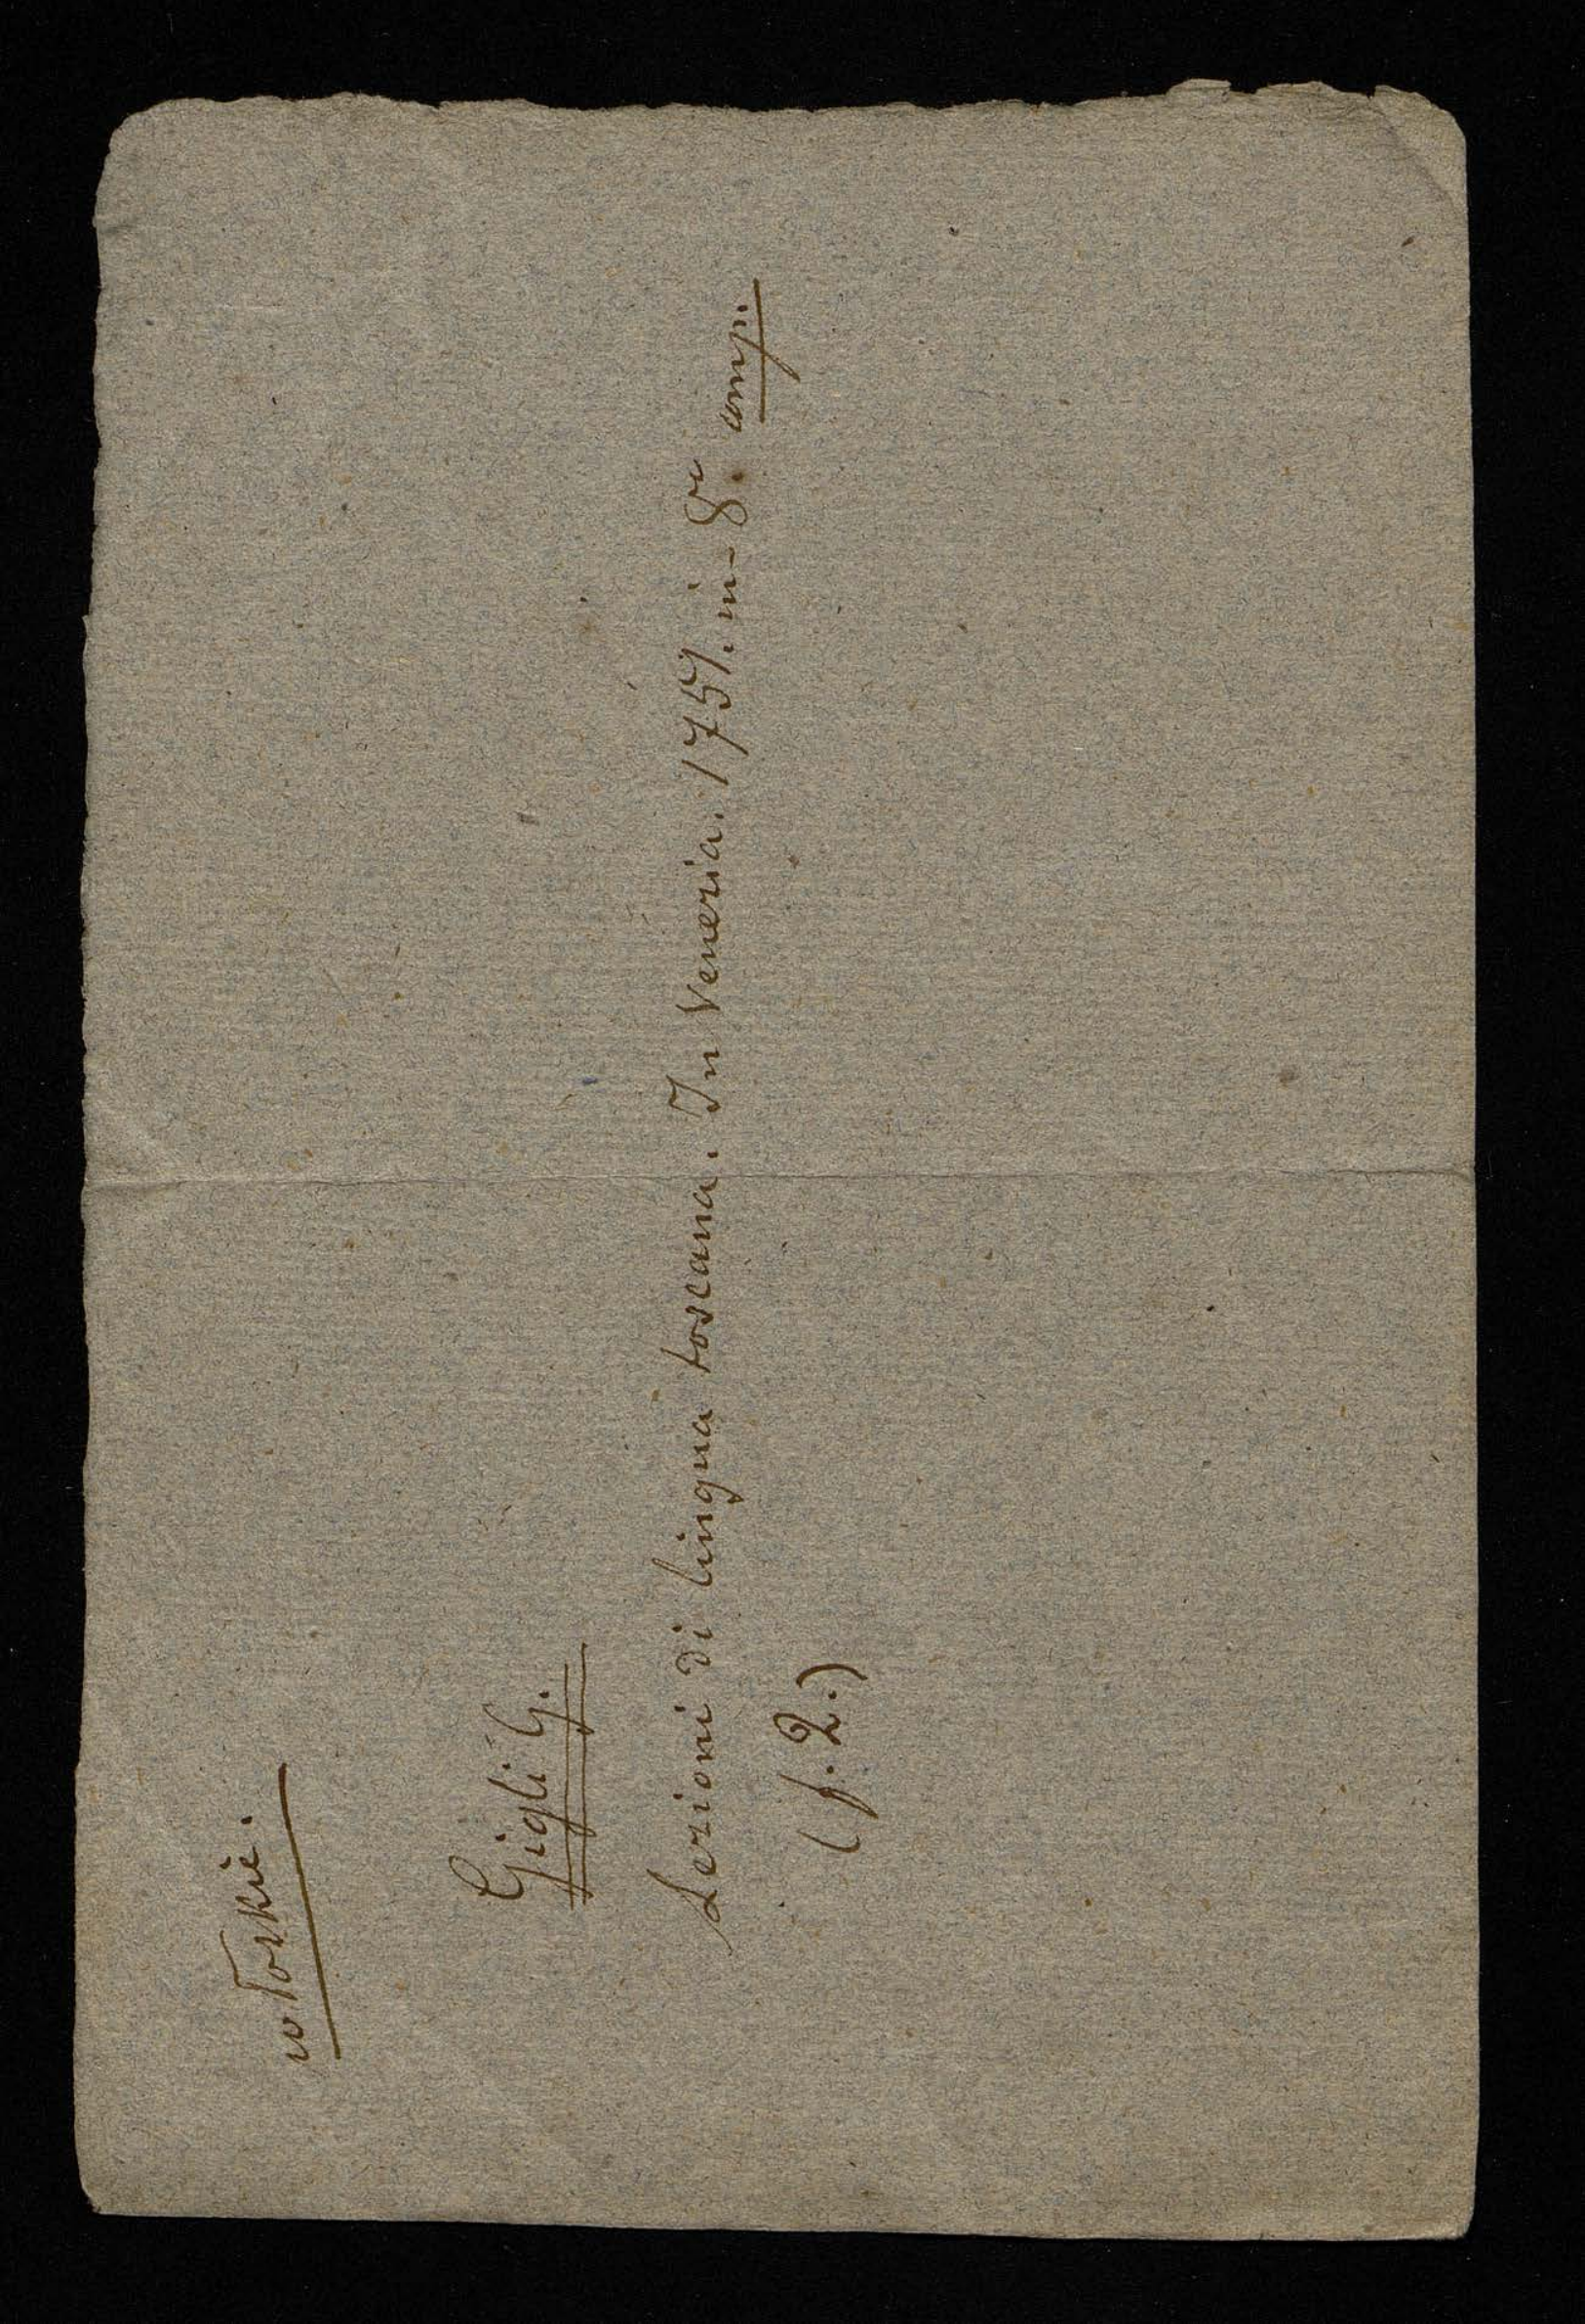 włoskie.
Gigli G.
Lezioni di lingua toscana. In Venezia. 1757. in-8vo. comp.
(f. 2.)